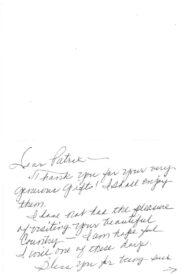 Dear Patric —
Thank you for your very
generous gifts! I shall enjoy
them.
I have not had the pleasure
of visiting your beautiful
Country — I am hopeful
I will one of these days.
Bless you for being such